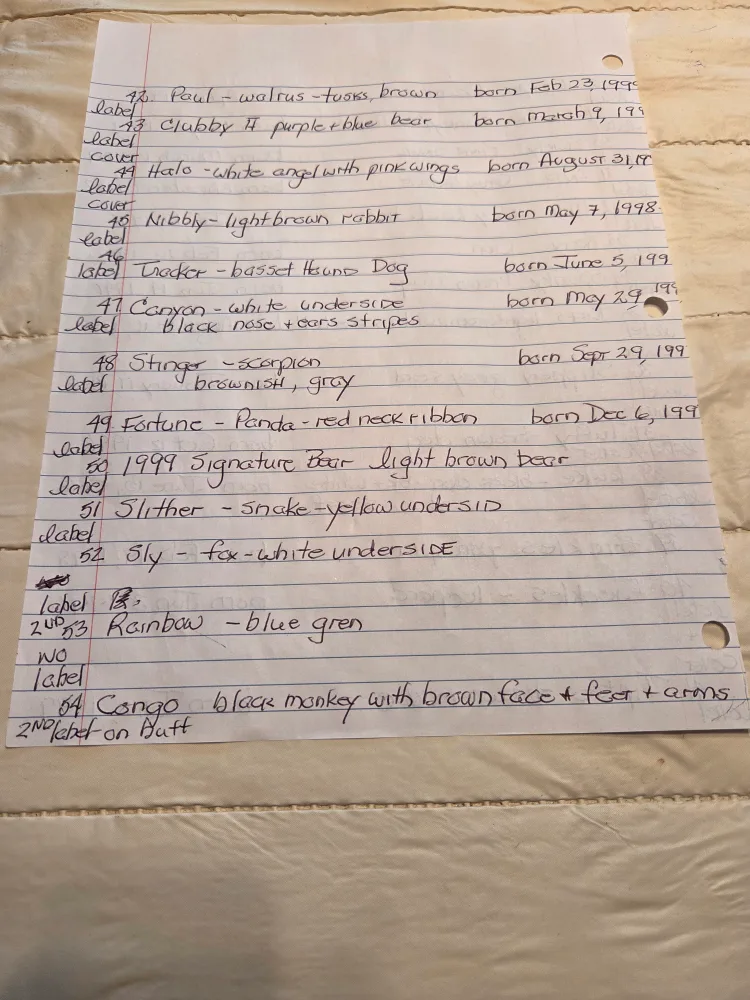 42 Paul - walrus - tusks, brown born Feb 23, 1999
label
43 Clubby II purple + blue bear born March 9, 199
label
cover
44 Halo - white angel with pink wings born August 31, 19
label
cover
45 Nibbly - light brown rabbit born May 7, 1998
label
46
label Tracker - basset Hound Dog born June 5, 199
47 Canyon - white underside born May 29, 199
label black nose + ears stripes
48 Stinger - scorpion born Sept 29, 199
label brownish, gray
49 Fortune - Panda - red neck ribbon born Dec 6, 199
label
50 1999 Signature Bear light brown bear
label
51 Slither - snake - yellow undersid
label
52 Sly - fox - white underside
label
2ND 53 Rainbow - blue gren
NO
label
54 Congo black monkey with brown face + feet + arms
2ND label on Butt